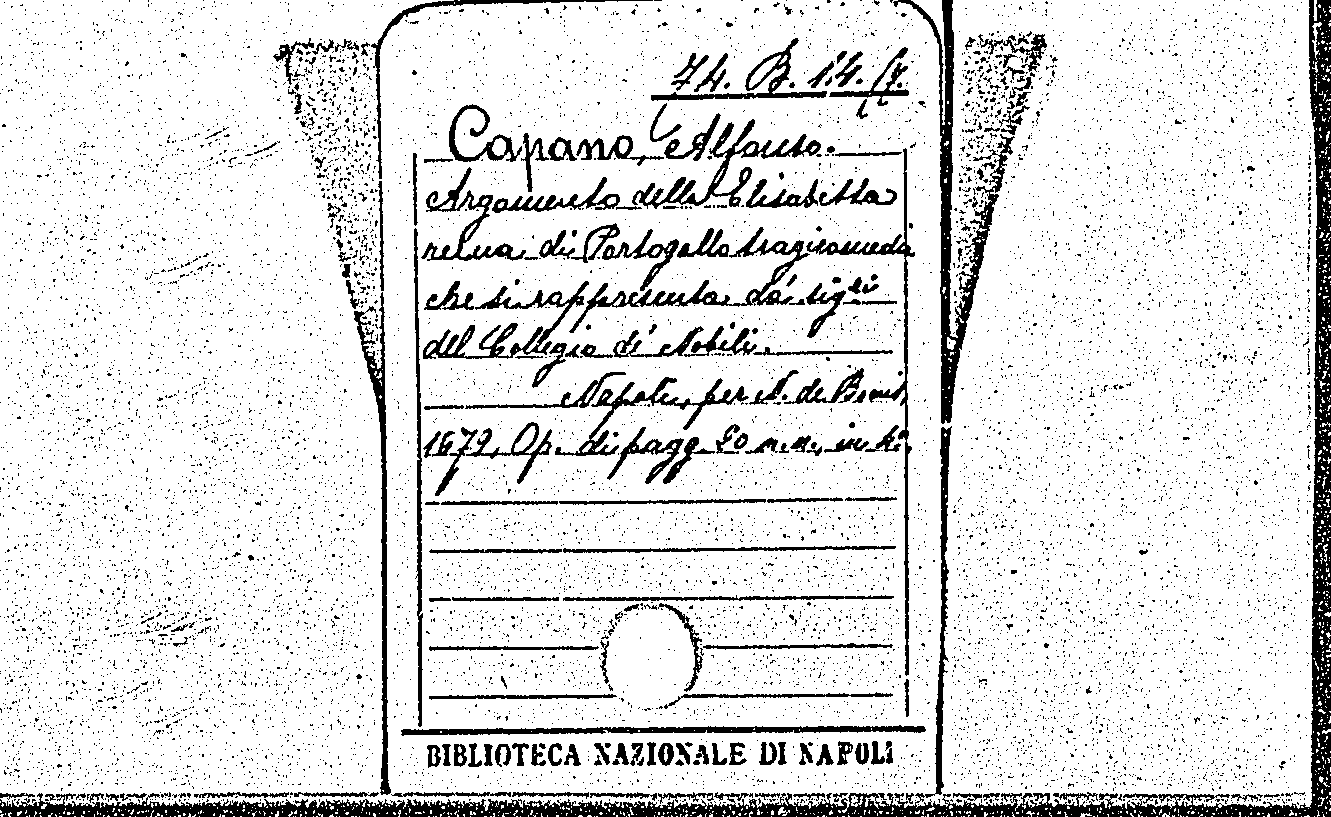 74. B. 14. (7.
Capano, Alfonso.
Argomento della Elisabetta
reina di Portogallo tragicomedia
che si rappresenta da' sig.ri
del Collegio de' Nobili.
Napoli, per N. de Bonis,
1679, Op. di pagg. 20 n.n., in 4°.
BIBLIOTECA NAZIONALE DI NAPOLI